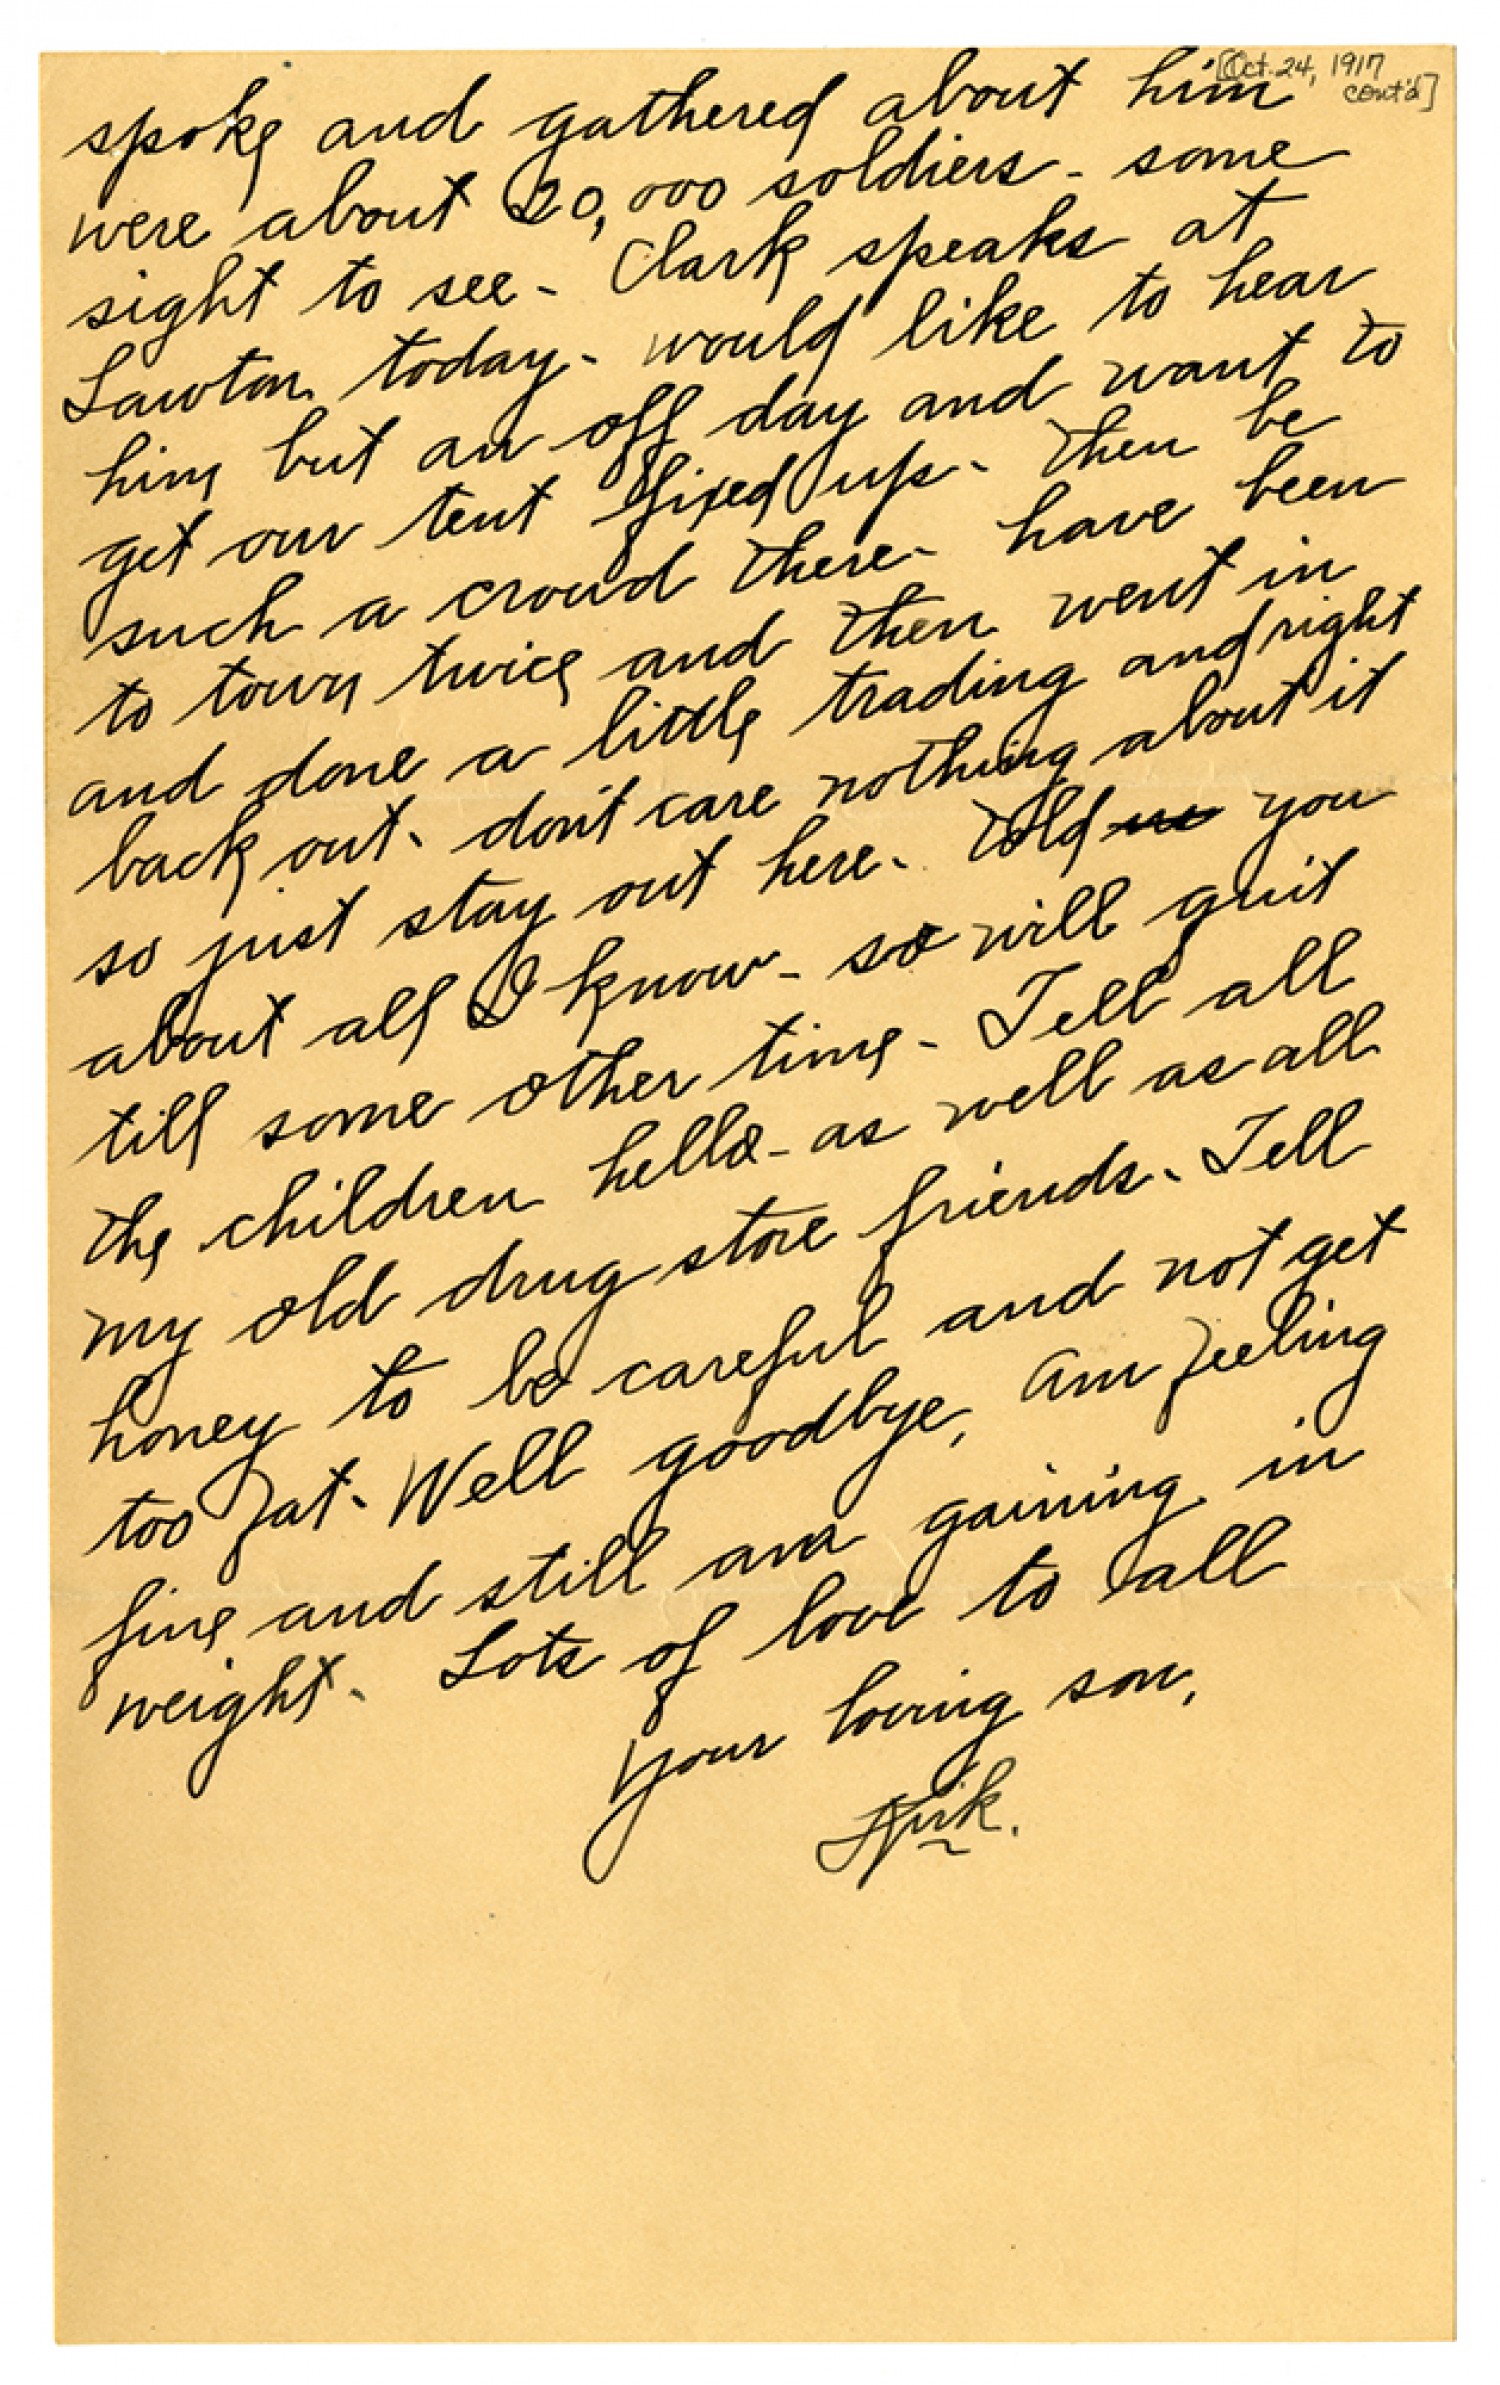 [Oct. 24, 1917
cont'd]
spoke and gathered about him
were about 20,000 soldiers - some
sight to see - Clark speaks at
Lawton today - would like to hear
him but an off day and want to
get our tent fixed up - then be
such a crowd there - have been
to town twice and then went in
and done a little trading and right
back out - don't care nothing about it
so just stay out here - told you
about all I know - so will quit
till some other time - Tell all
the children hello - as well as all
my old drug store friends - Tell
honey to be careful and not get
too fat - Well goodbye, am feeling
fine and still am gaining in
weight - Lots of love to all
Your loving son,
Kirk.